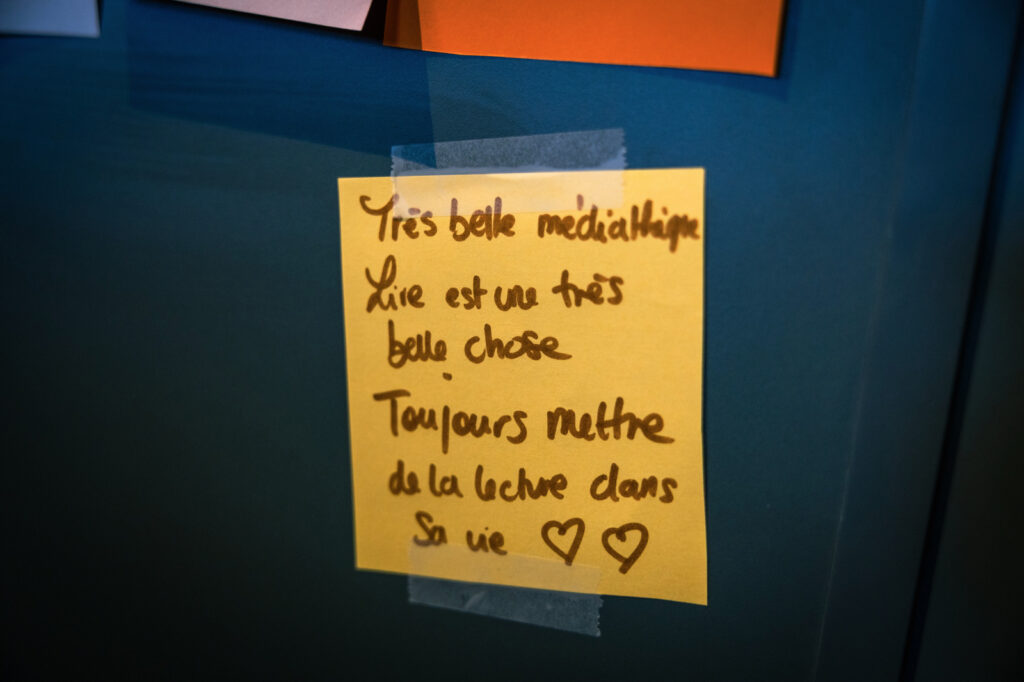 Très belle médiathèque
Lire est une très
belle chose
Toujours mettre
de la lecture dans
sa vie ♡ ♡